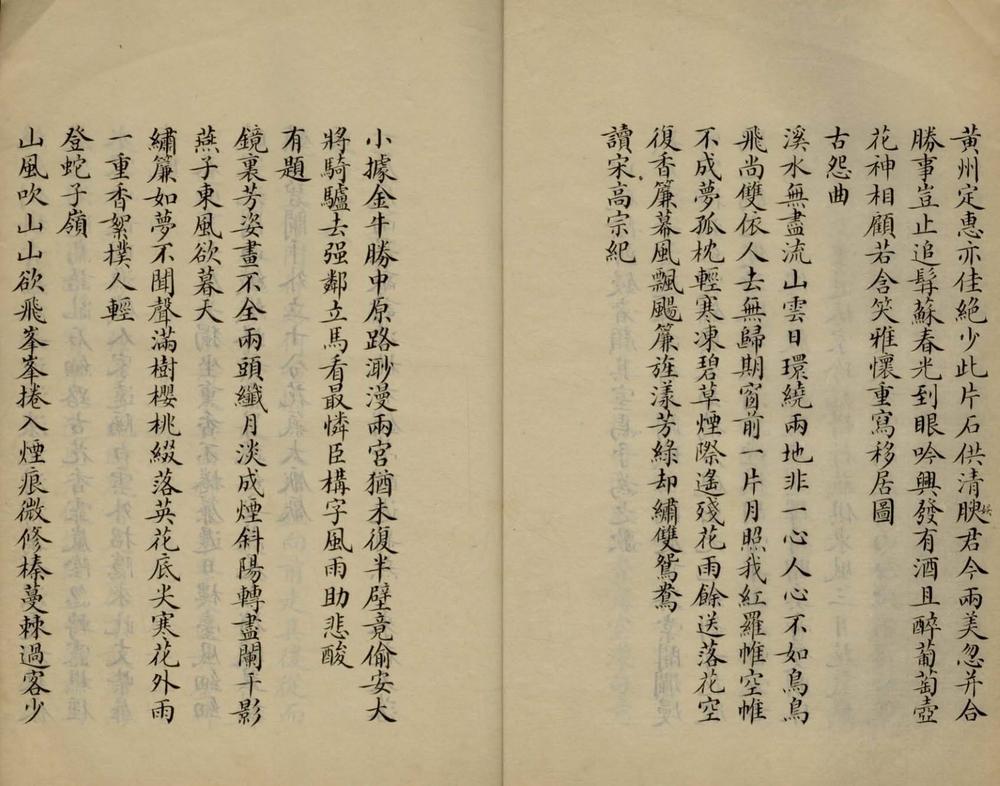 黃州定惠亦佳絶少此片石供清腴君今兩美忽并合
勝事豈止追髯蘇春光到眼吟興發有酒且醉葡萄壺
花神相顧若含笑雅懷重寫移居圖
古怨曲
溪水無盡流山雲日環繞兩地非一心人心不如鳥鳥
飛尚雙依人去無歸期窗前一片月照我紅羅帷空帷
不成夢孤枕輕寒凍碧草煙際遙殘花雨餘送落花空
復香簾幕風飄颺簾旌漾芳綠却繡雙鴛鴦
讀宋高宗紀
小據金牛勝中原路渺漫兩宮猶未復半壁竟偷安大
將騎驢去强鄰立馬看最憐臣構字風雨助悲酸
有題
鏡裏芳姿畫不全兩頭纖月淡成煙斜陽轉盡闌干影
燕子東風欲暮天
繡簾如夢不聞聲滿樹櫻桃綴落英花底尖寒花外雨
一重香絮撲人輕
登蛇子嶺
山風吹山山欲飛峯峯捲入煙痕微修榛蔓棘過客少